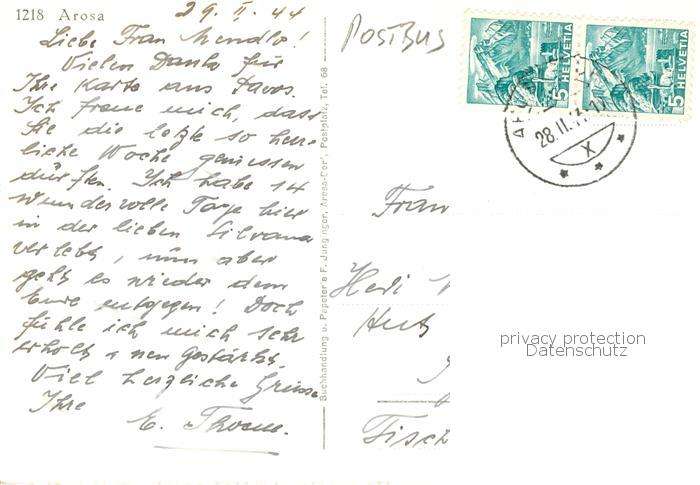 1218 Arosa
29. II. 44
Liebe Frau Mendlo!
Vielen Dank für
Ihre Karte aus Davos.
Ich freue mich, dass
Sie die letzte so herr-
liche Woche geniessen
dürften. Ich habe 14
wundervolle Tage hier
in der lieben Silvana
verlebt, nun aber
geht es wieder dem
Ende entgegen! Doch
fühle ich mich sehr
erholt & neu gestärkt.
Viel herzliche Grüsse
Ihre
E. Thoene.
Buchhandlung u. Papeterie F. Junginger, Arosa-Dorf, Postplatz, Tel. 68
POSTBUS
5 HELVETIA
5 HELVETIA
28. II.
X
Frau
Hedi
Huts
Fisch
privacy protection
Datenschutz